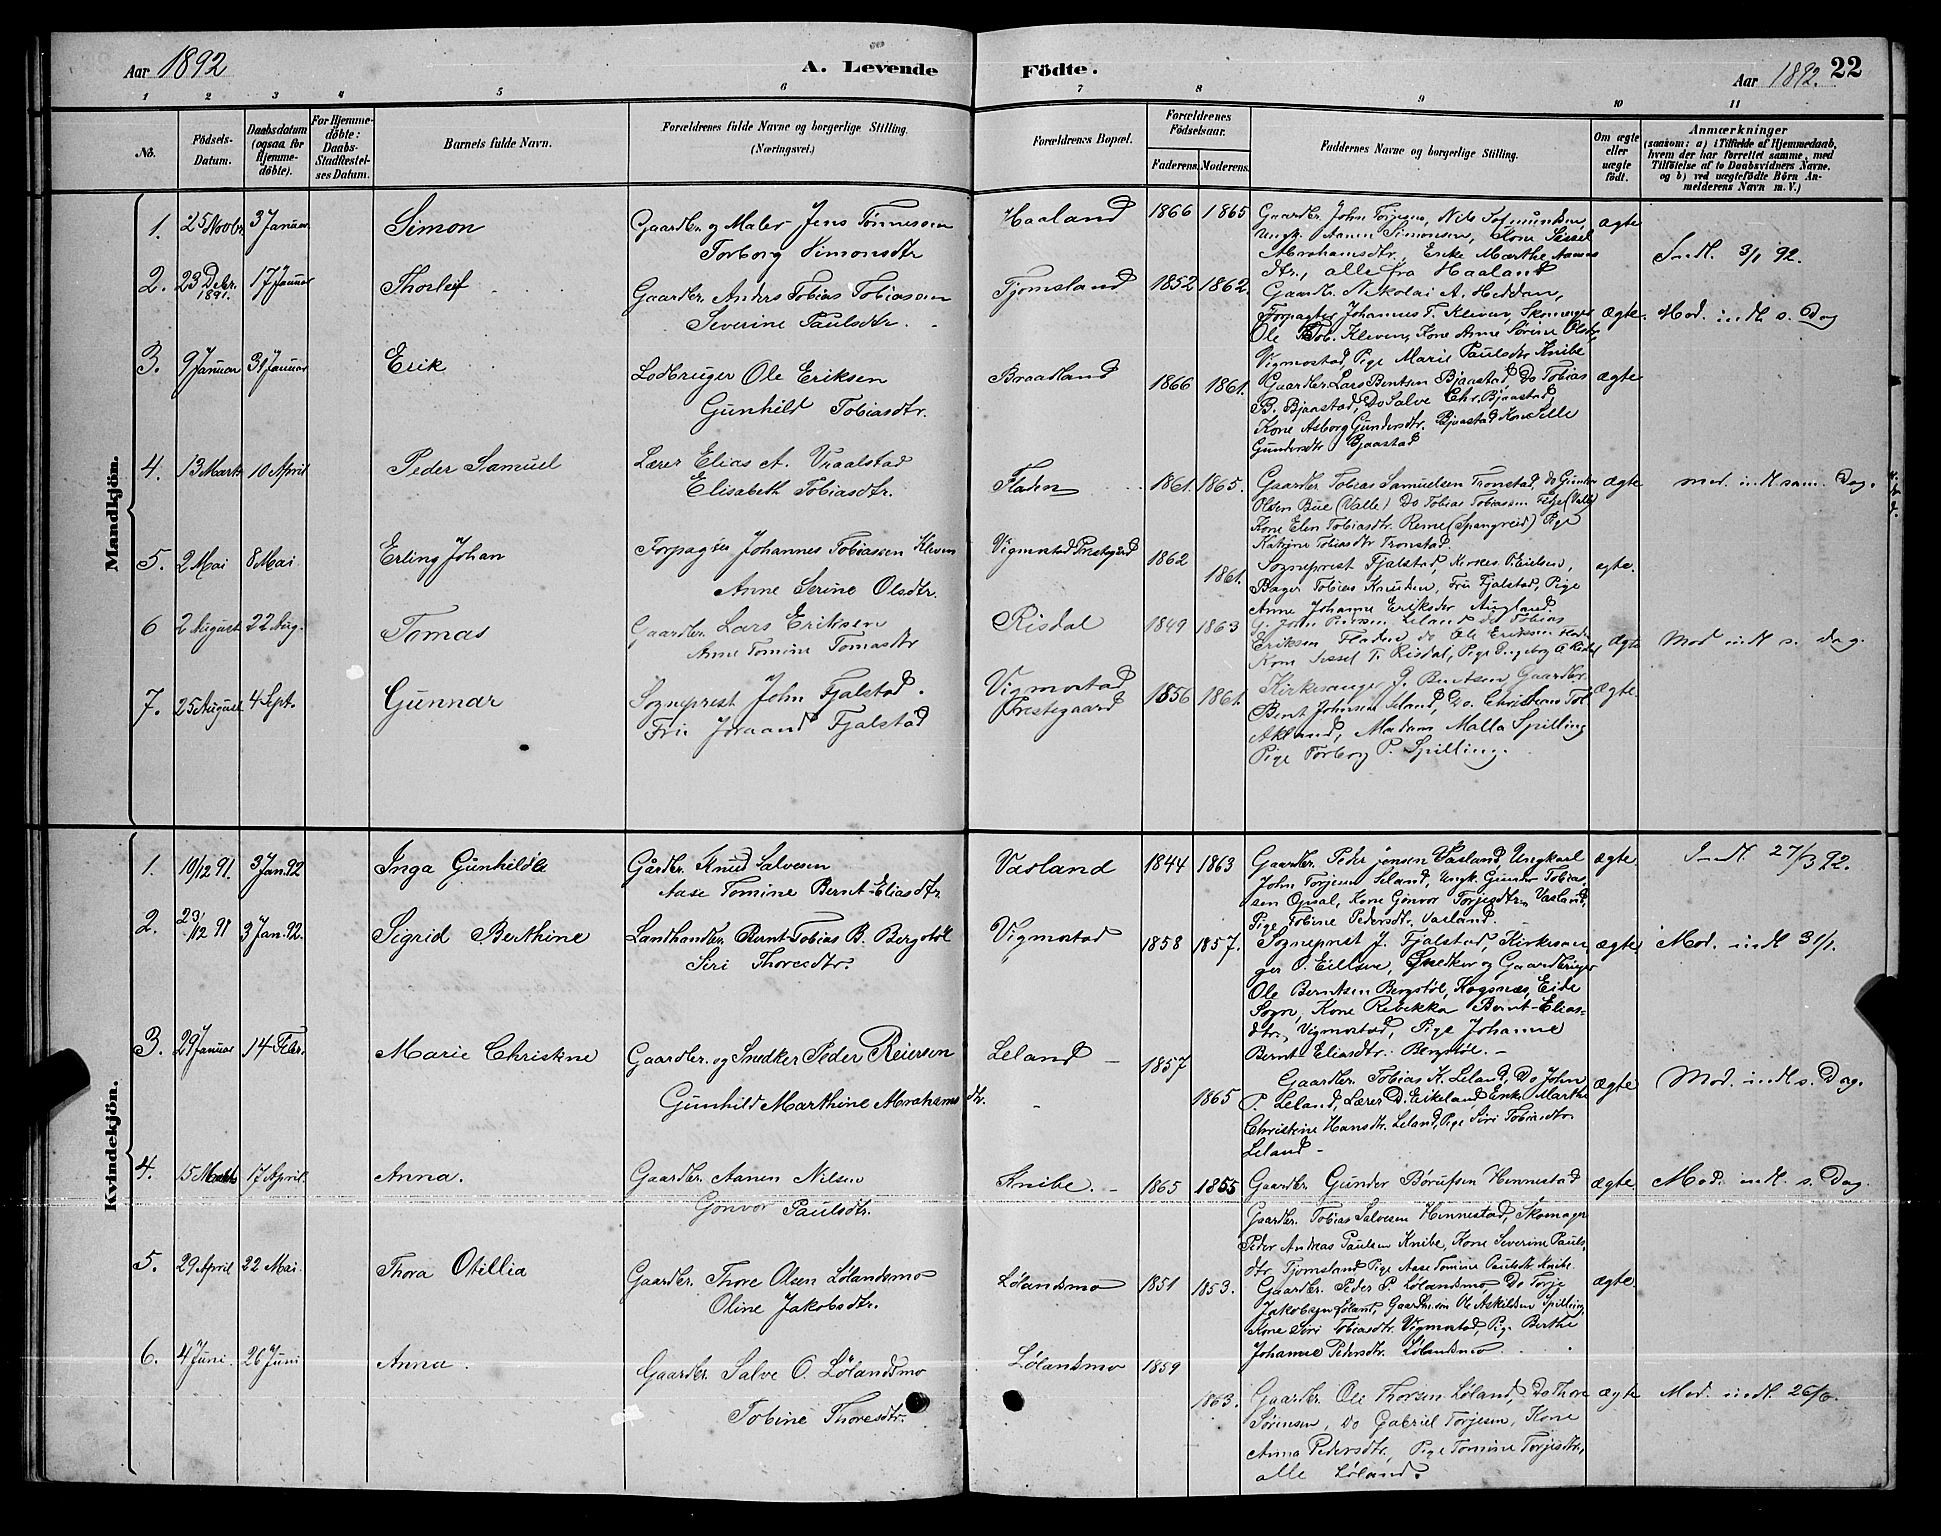 Aar 1892
A. Levende
Födte.
Aar 1892. 22
1 2 3 4 5 6 7 8 9 10 11
No.
Födsels-
Datum.
Daabsdatum
(ogsaa for
Hjemme-
döbte).
For Hjemme-
döbte:
Daabs-
Stadfæstel-
ses Datum.
Barnets fulde Navn.
Forældrenes fulde Navne og borgerlige Stilling.
(Næringsvei.)
Forældrenes Bopæl.
Forældrenes
Födselsaar.
Faderens. Moderens.
Faddernes Navne og borgerlige Stilling.
Om ægte
eller
uægte
födt.
Anmærkninger
(saasom: a) i Tilfælde af Hjemmedaab,
hvem der har forrettet samme, med
Tilföielse af to Daabsvidners Navne,
og b) ved uægtefödte Börn An-
melderens Navn m. V.)
Mandkjön.
1. 25 Novbr. 3 Januar Simon
Gaardbr. og Maler Jens Tønnessen
Torborg Simonsdtr
Haaland 1866 1865
Gaardbr. John Torjesen, Nils
Ungk. Aanen Simonsen, Kone Sissel
Abrahamsdtr., Enke Marthe Aanens
dtr., alle fra Haaland
ægte
Indl. 3/1 92.
2. 23 Debr. 1891. 17 Januar Thorleif
Gaardbr. Anders Tobias Tobiassen
Severine Paulsdtr.
Tjomsland 1852 1862.
Gaardb. Nikolai A. Heddan,
Forpagter Johannes T. Kleven, Skomager
Ole Tob. Kleven, Kone Anne Serine Olsdtr
Vigmostad Pige Marie Paulsdtr Knibe
ægte. Mod. indl. s. Dag
3. 9 Januar 31 Januar Erik
Lodbruger Ole Eriksen
Gunhild Tobiasdtr.
Braadland 1866 1861.
Gaardbr. Lars Bentsen Bjaastad, Do Tobias
B. Bjaastad, Do Salve Chr. Bjaastad,
Kone Asborg Gundersdtr. Bjaastad Kone Sille
Gundersdtr Bjaastad
ægte
4. 13 Marts 10 April Peder Samuel
Lærer Elias A. Vraalstad
Elisabeth Tobiasdtr.
Fladen 1861. 1865.
Gaardbr. Tobias Samuelsen Tronstad, do Gunder
Olsen Bue (Valle) Do Tobias Tobiassen (Valle)
Kone Elen Tobiasdtr. Reme (Spangreid) Pige
Katrine Tobiasdtr Tronstad.
ægte mod. indl sam. Dag.
5. 2 Mai 8 Mai Erling Johan
Forpagter Johannes Tobiassen Kleven
Anne Serine Olsdtr.
Vigmostad Prestegård 1862 1861.
Sogneprest Fjalstad, Eielsen,
Bager Tobias Knudsen, Fru Fjalstad, Pige
Anne Johanne Eriksdtr Augland.
ægte.
6 2 August 22 Aug. Tomas
Gaardbr. Lars Eriksen
Anne Tomine Tomasdtr
Risdal 1849 1863
G. John Leland do Tobias
Eriksen Fladen do Ole Eriksen
Kone Sissel T. Risdal, Pige Ingeborg
ægte Mod indl s. dag.
7. 25 August 4 Sept. Gunnar
Sogneprest John Fjalstad.
Fru Joraand Fjalstad
Vigmostad
Prestegaard 1856 1861.
Kirkesanger J. Bentsen, Gaardbr.
Bent Johnsen Leland, Do. Christen
Akland, Madam Malla Spilling
Pige Torborg P. Spilling.
ægte.
Kvindekjön.
1. 10/12 91. 3 Jan. 92 Inga Gunhilde
Gårdbr. Knud Salvesen
Aase Tomine Bernt-Eliasdtr.
Vasland 1844 1863
Gaardbr. Peder Jensen Vasland, Ungkarl
John Torjesen Leland, Ungk. Gunder Tobias-
sen Opsal, Kone Gonvor Torjesdtr. Vasland,
Pige Tobine Pedersdtr. Vasland.
ægte. Indl. 27/3 92.
2. 23/12 91 3 Jan. 92. Sigrid Berthine
Landhandler Bernt-Tobias B. Bergstøl
Siri Thoresdtr.
Vigmostad 1858 1857.
Sogneprest J. Fjalstad, Kirkesan-
ger O. Eielsen, Snedker og Gaardbruger
Ole Berntsen Bergstøl, Eide
Sogn, Kone Rebekka Bernt-Elias-
dtr., Vigmostad, Pige Johanne
Bernt Eliasdtr. Bergstøl.
ægte. Mod. indl 31/1.
3. 29 Januar 14 Febr. Marie Christine
Gaardbr. og Snedker Peder Reiersen
Gunhild Marthine Abrahams dtr.
Leland 1857 1865
Gaardbr. Tobias K. Leland, Do John
P. Leland, Lærer D. Eikeland Enke Marthe
Christine Hansdtr. Leland, Pige Siri Tobiasdtr
Leland
ægte Mod. indl s. Dag.
4. 15 Marts 17 April. Anna.
Gaardbr. Aanen Nilsen
Gonvor Paulsdtr.
Knibe. 1865 1855
Gaardbr. Gunder Børufsen Hennestad
Gaardbr. Tobias Salvesen Hennestad, Skomager
Peder Andreas Paulsen Knibe, Kone Severine Pauls-
dtr Tjomsland Pige Aase Tomine Paulsdtr Knibe.
ægte Mod. indl. s. Dag.
5. 29 April 22 Mai. Thora Otillia
Gaardbr. Thore Olsen Lølandsmo
Oline Jakobsdtr.
Lølandsmo 1851 1853.
Gaardbr. Peder P. Lølandsmo Do Torje
Jakobsen Løland, Gaardbr.søn Ole Askildsen Spilling,
Kone Siri Tobiasdtr. Vigmostad, Pig. Berthe
Johanne Pedersdtr. Lølandsmo
ægte.
6. 4 Juni. 26 Juni Anna.
Gaardbr. Salve O. Lølandsmo
Tobine Thoresdtr.
Lølandsmo 1859 1863.
Gaardbr. Ole Thorsen Løland, Do Thore
Sørensen, Do Gabriel Torjesen, Kone
Anna Pedersdtr., Pige Tomine Torjesdtr.,
alle Løland.
ægte Mod. indl. 26/6.